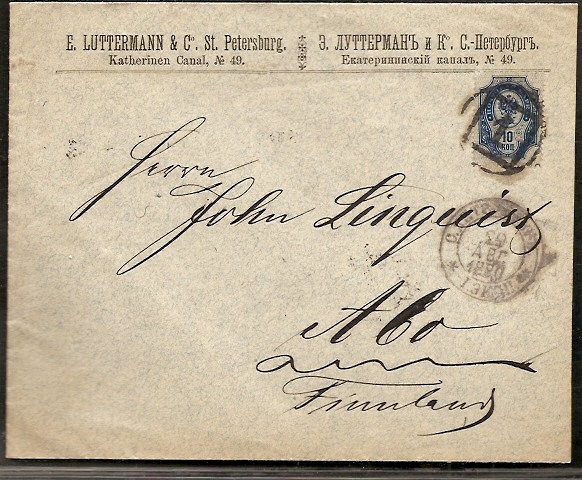 E. LUTTERMANN & Cº. St. Petersburg.
Katherinen Canal, № 49.
Э. ЛУТТЕРМАНЪ и Кº. С.-Петербургъ.
Екатерининскій каналъ, № 49.
10
КОП.
Herrn
John Linquist
Abo
Finnland
АВГ
1890
1 ЭКСП.